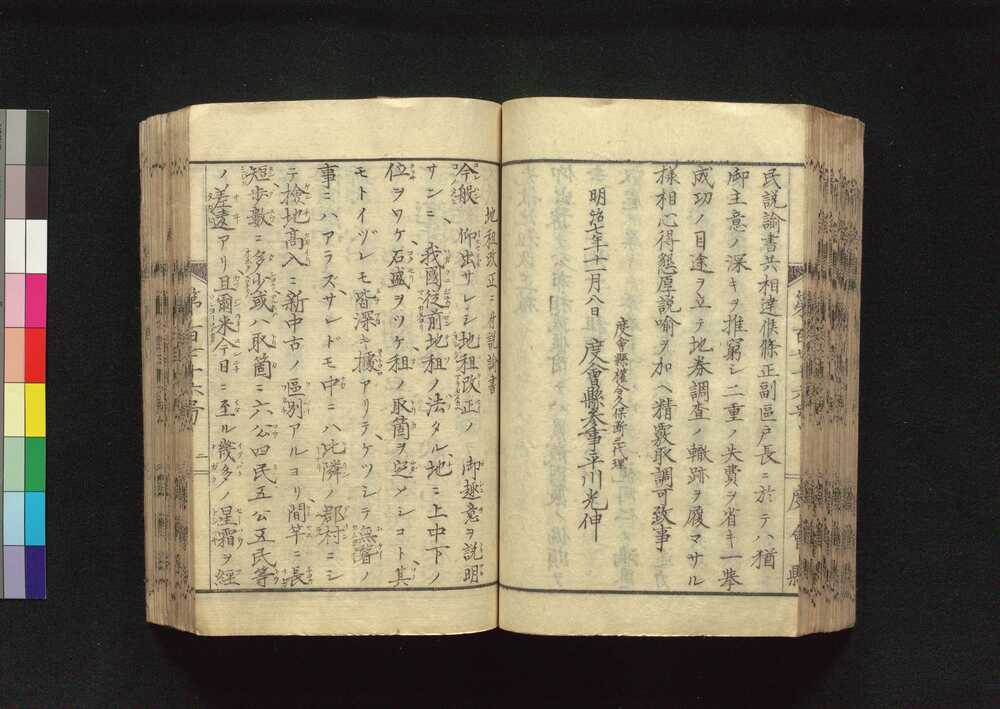 民説諭書共相達候條正副區戸長ニ於テハ猶
御主意ノ深キヲ推窮シ二重ノ失費ヲ省キ一擧
成功ノ目途ヲ立テ地券調査ノ轍跡ヲ履マサル
様相心得懇厚説喩ヲ加ヘ精覈取調可致事
度會縣權令久保斷三代理
明治七年十一月八日 度會縣參事平川光伸
度會縣
地租改正ニ付説諭書
今般 仰出サレシ地租改正ノ 御趣意ヲ説明
サンニ、我國從前地租ノ法タル、地ニ上中下ノ
位ヲワケ石盛ヲツケ租ノ取箇ヲ定メシコト、其
モトイヅレモ皆深キ據アリテケツシテ無審ノ
事ニハアラズ、サレドモ中ニハ比隣ノ郡村ニシ
テ檢地高入ニ新中古ノ區別アルヨリ、間竿ニ長
短歩數ニ多少或ハ取箇ニ六公四民五公五民等
ノ差違アリ且爾来今日ニ至ル幾多ノ星霜ヲ經
二